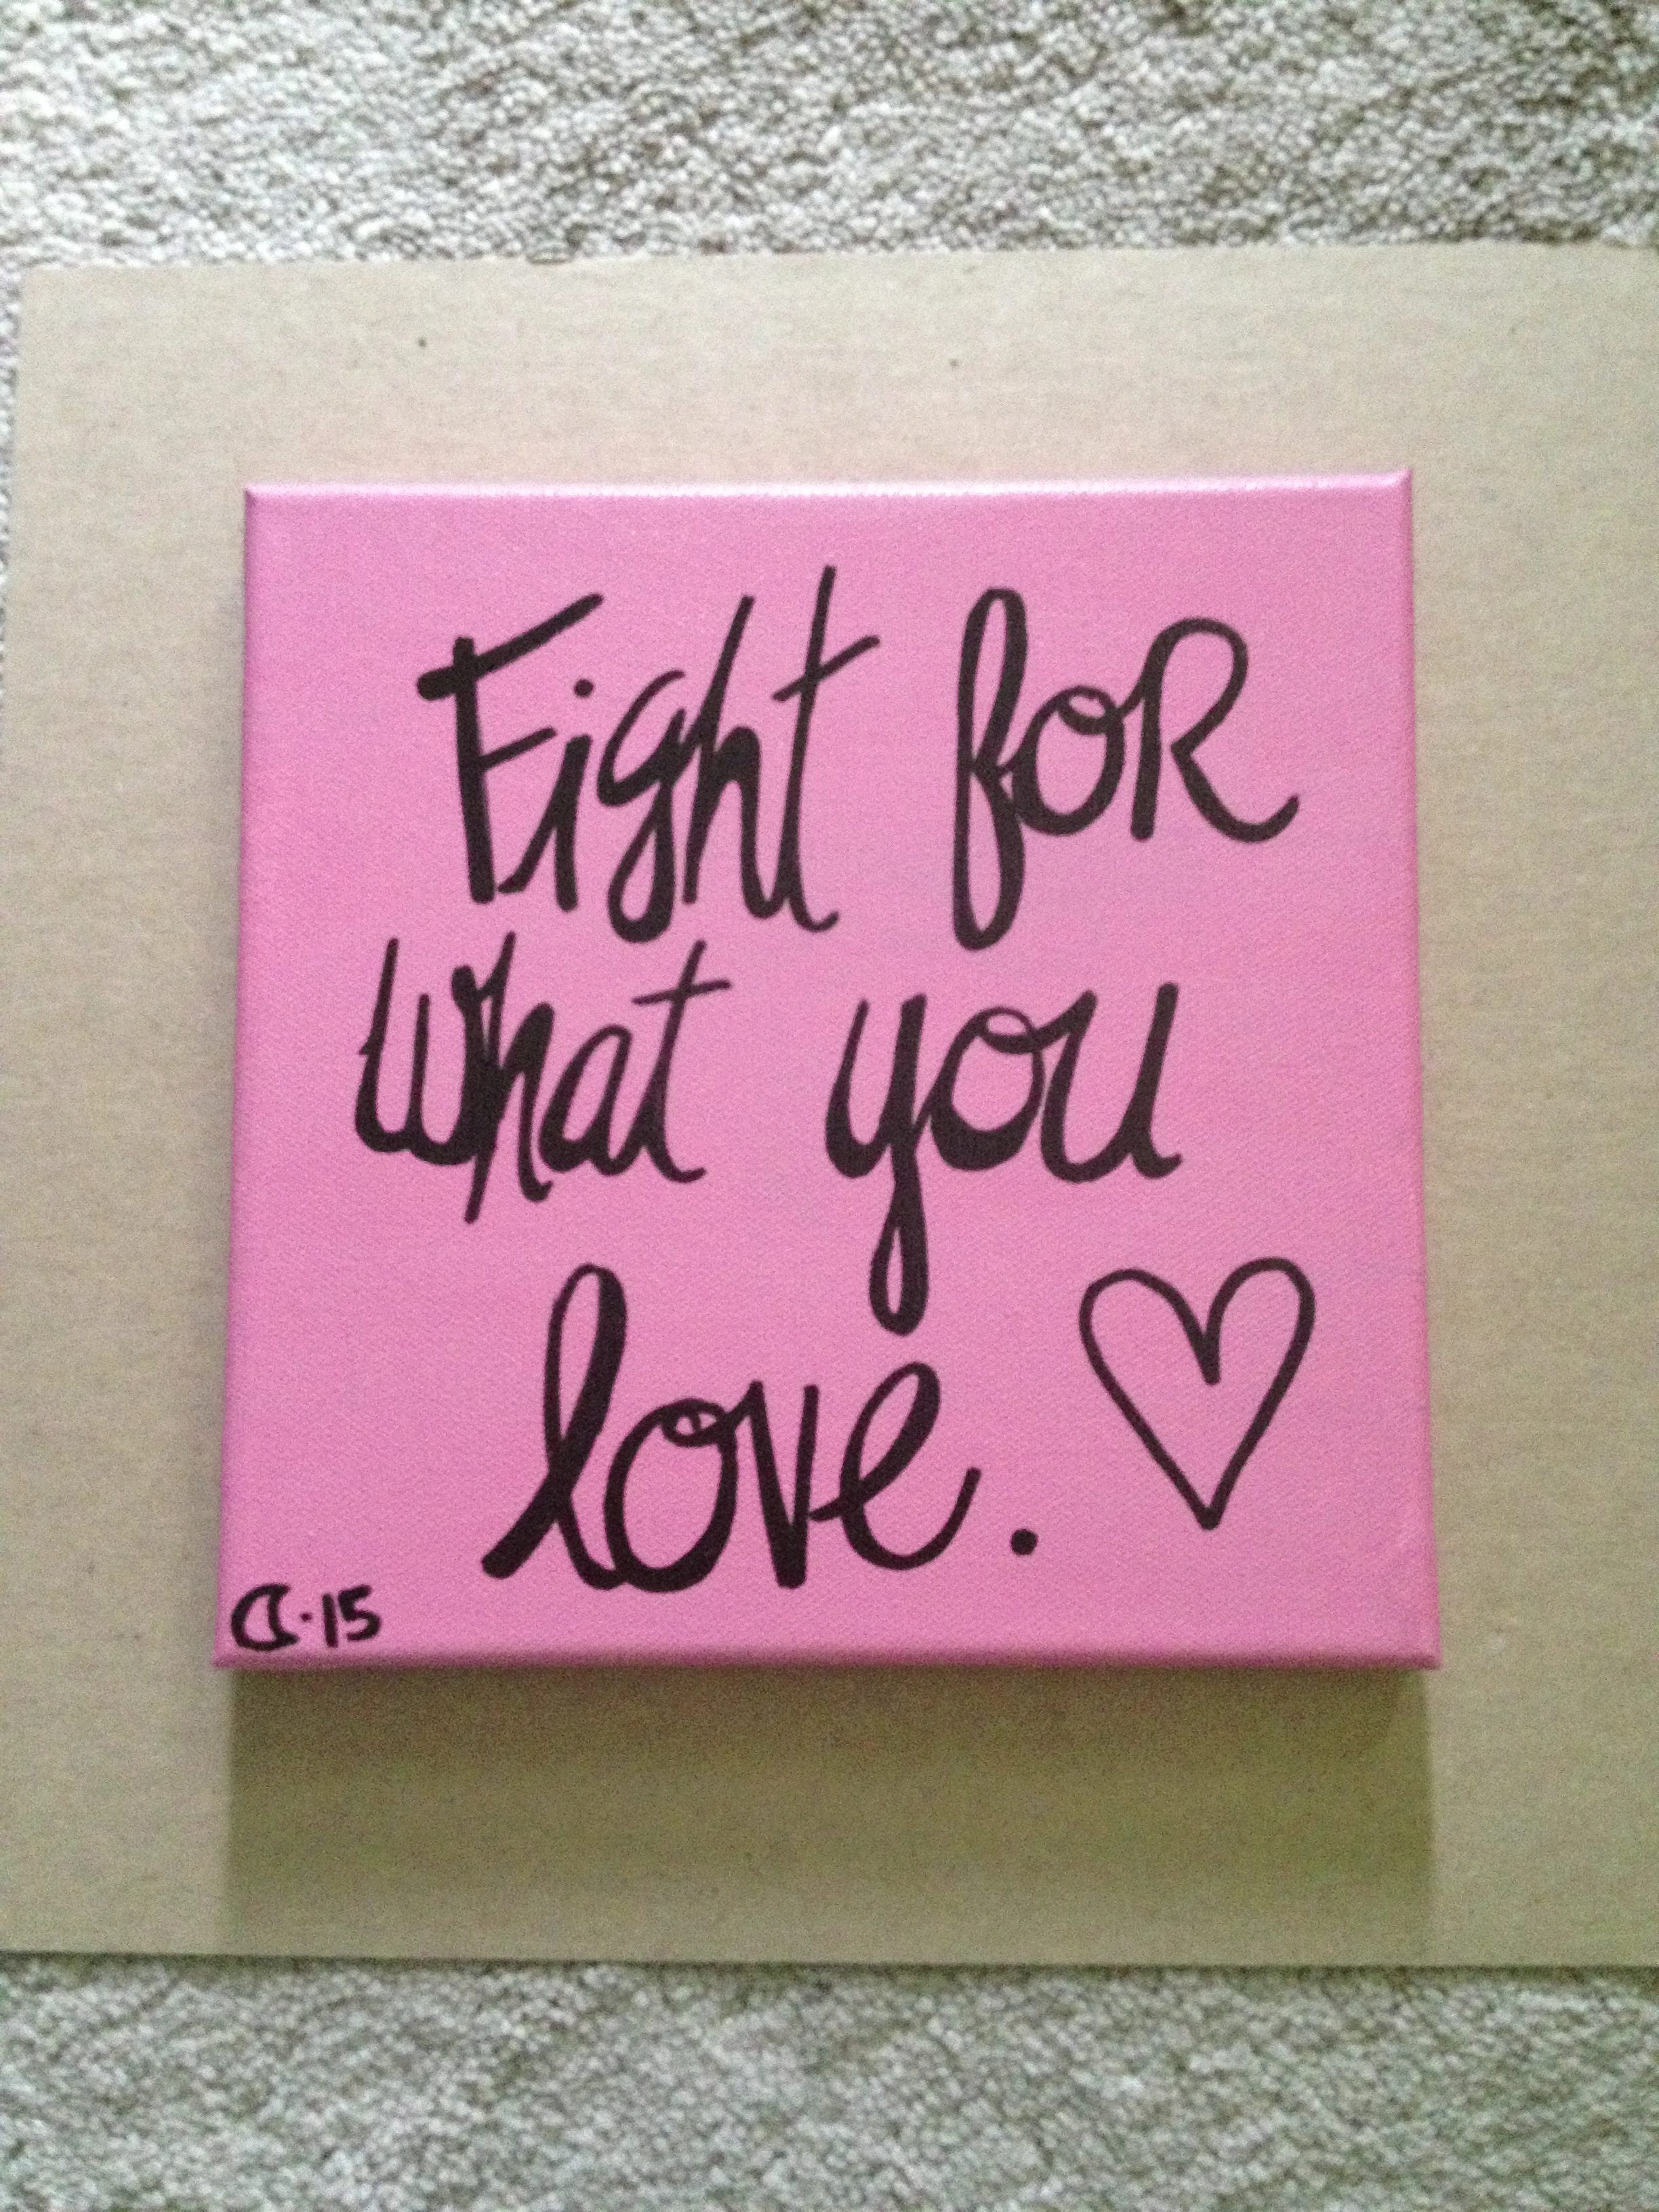 Fight foR
What you
love.